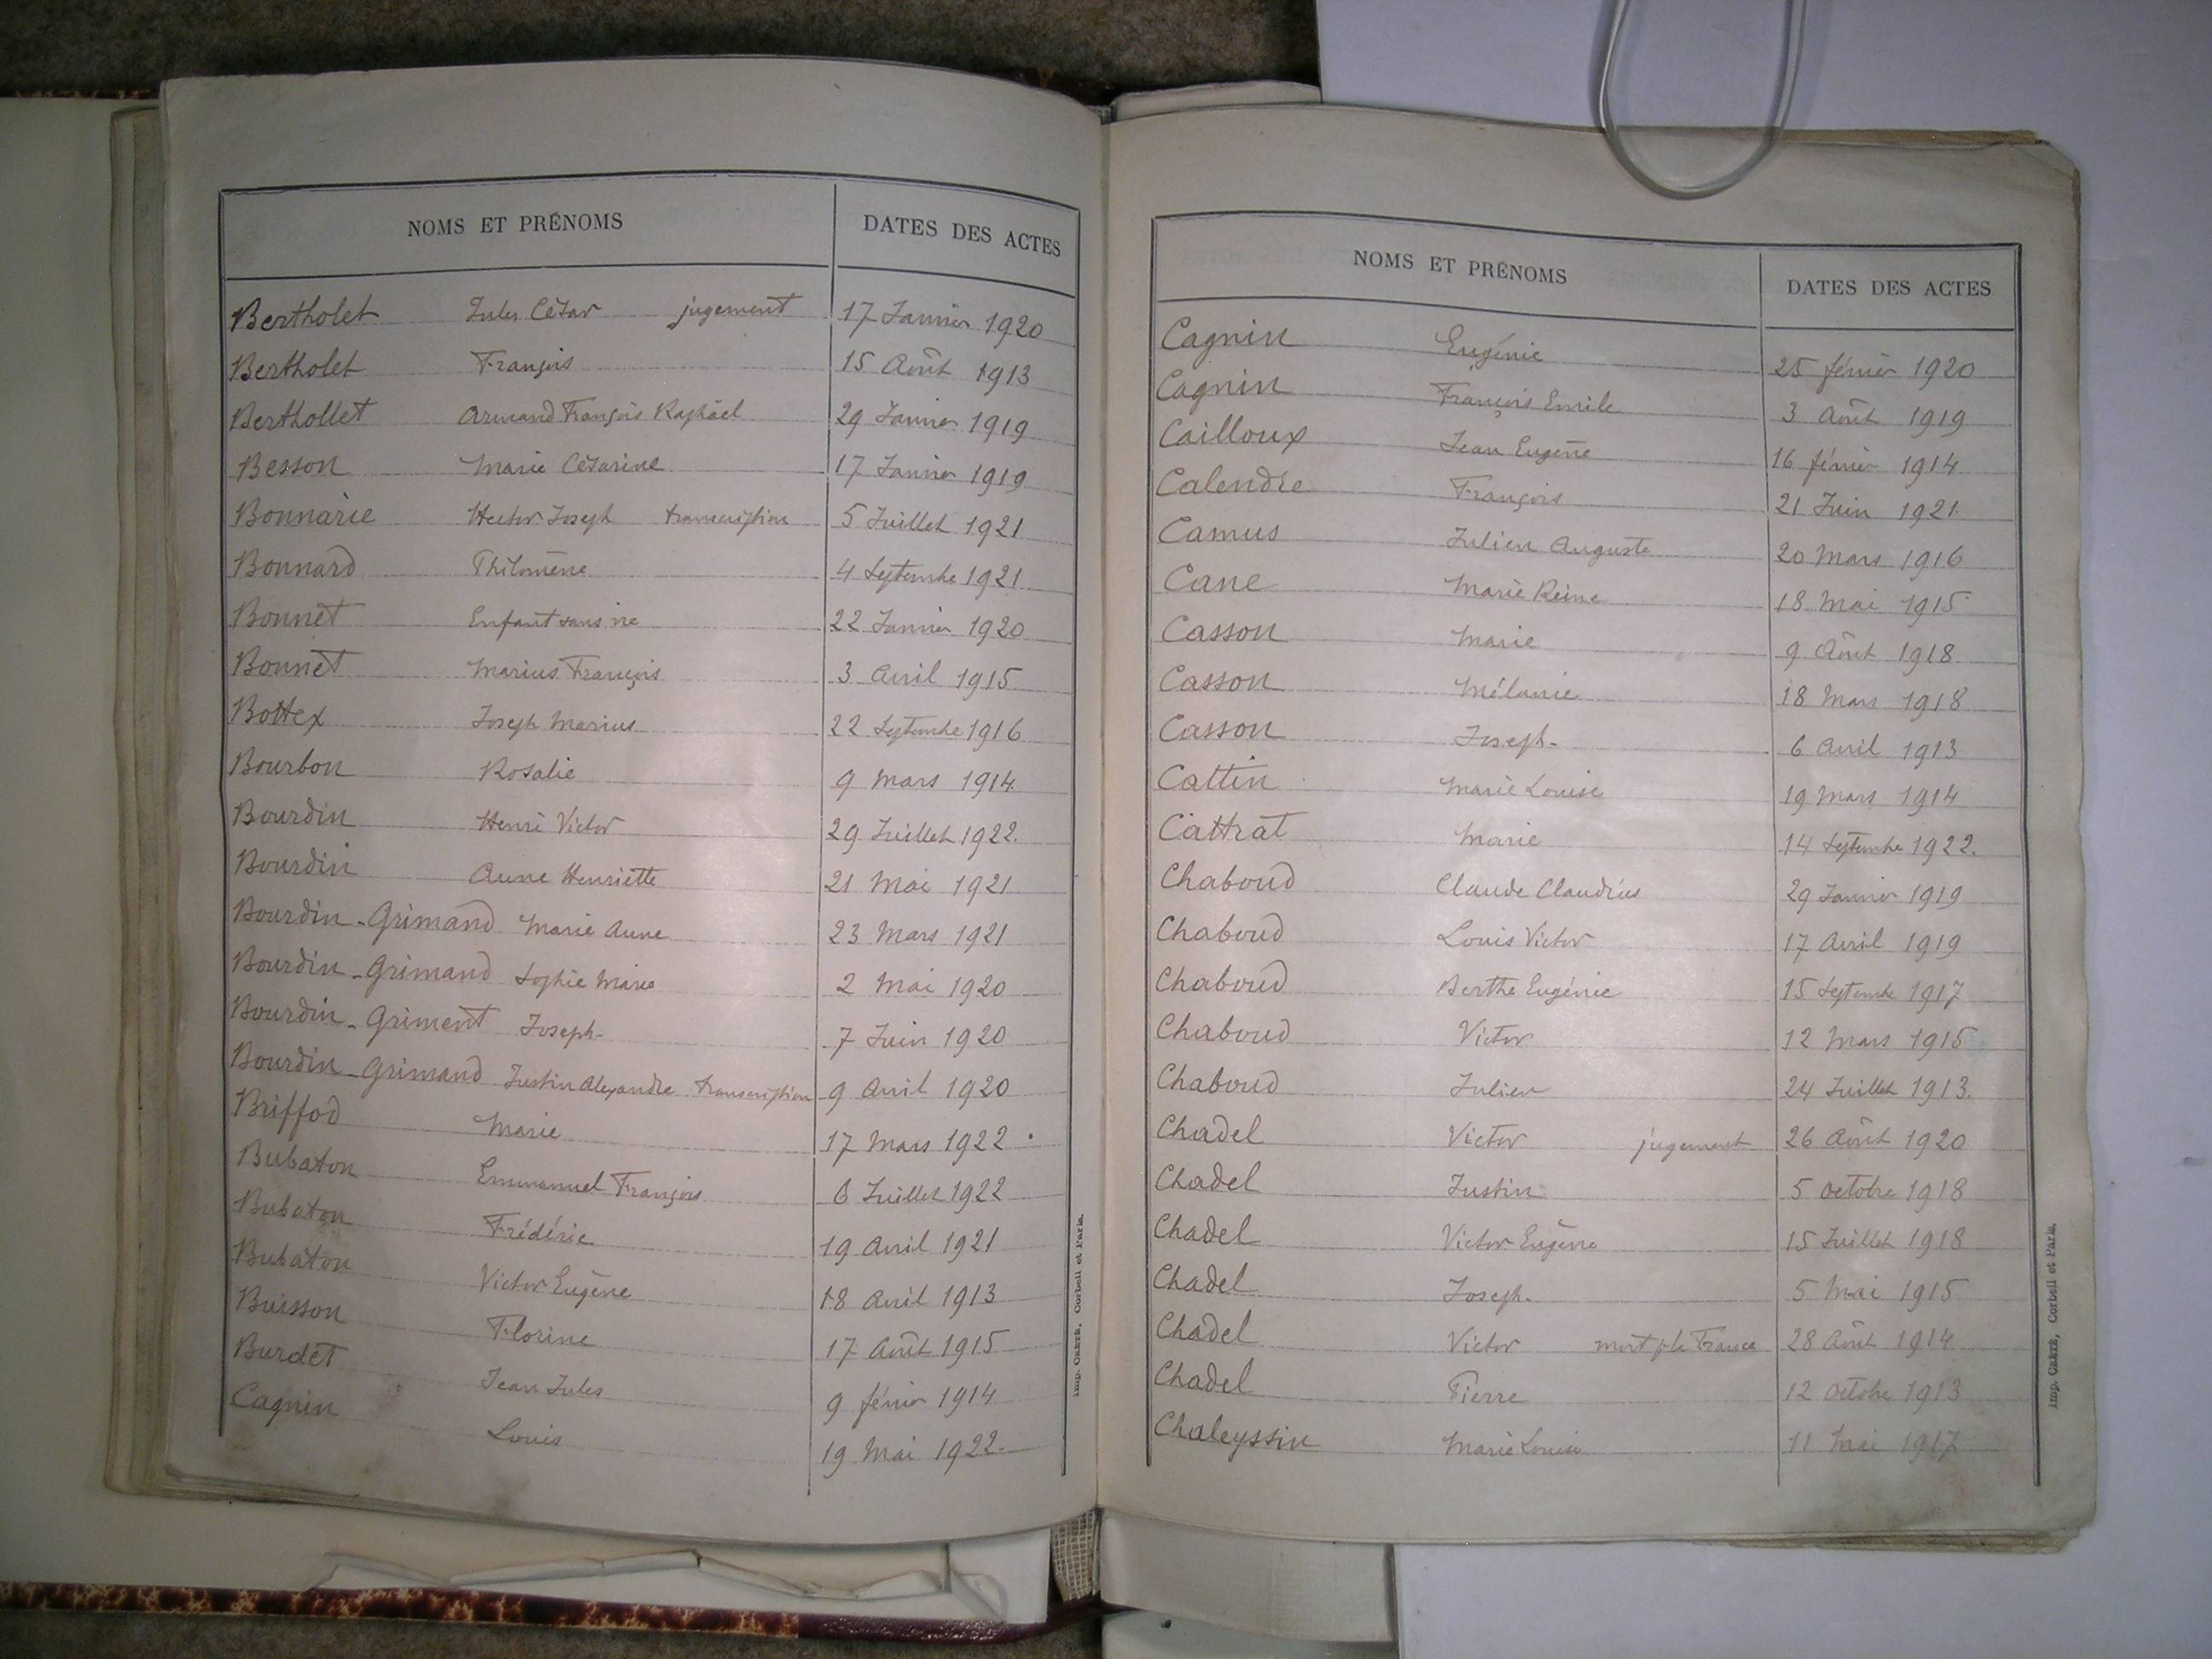 NOMS ET PRÉNOMS DATES DES ACTES
Bertholet Jules César jugement 17 Janvier 1920
Bertholet François 15 Août 1913
Berthollet Armand François Raphaël 29 Janvier 1919
Besson Marie Césarine 17 Janvier 1919
Bonnarie Hector Joseph transcription 5 Juillet 1921
Bonnard Philomène 4 Septembre 1921
Bonnet Enfant sans vie 22 Janvier 1920
Bonnet Marius François 3 Avril 1915
Bottex Joseph Marius 22 Septembre 1916
Bourbon Rosalie 9 Mars 1914
Bourdin Henri Victor 29 Juillet 1922.
Bourdin Anne Henriette 21 Mai 1921
Bourdin-Grimand Marie Anne 23 Mars 1921
Bourdin-Grimand Sophie Marie 2 Mai 1920
Bourdin-Griment Joseph 7 Juin 1920
Bourdin-Grimand Justin Alexandre transcription 9 Avril 1920
Briffod Marie 17 Mars 1922
Bubaton Emmanuel François 6 Juillet 1922
Bubaton Frédéric 19 Avril 1921
Bubaton Victor Eugène 18 Avril 1913
Buisson Florine 17 Août 1915
Burdet Jean Jules 9 février 1914
Cagnin Louis 19 Mai 1922.
Imp. CRÉTÉ, Corbeil et Paris.
NOMS ET PRÉNOMS DATES DES ACTES
Cagnin Eugénie 25 février 1920
Cagnin François Emile 3 Août 1919
Cailloux Jean Eugène 16 février 1914
Calendre François 21 Juin 1921
Camus Julien Auguste 20 Mars 1916
Cane Marie Reine 18 Mai 1915
Casson Marie 9 Août 1918
Casson Mélanie 18 Mars 1918
Casson Joseph 6 Avril 1913
Cattin Marie Louise 19 Mars 1914
Cattrat Marie 14 Septembre 1922.
Chaboud Claude Claudius 29 Janvier 1919
Chaboud Louis Victor 17 Avril 1919
Chaboud Berthe Eugénie 15 Septembre 1917
Chaboud Victor 12 Mars 1915
Chaboud Julien 24 Juillet 1913.
Chadel Victor jugement 26 Août 1920
Chadel Justin 5 octobre 1918
Chadel Victor Eugène 15 Juillet 1918
Chadel Joseph 5 Mai 1915
Chadel Victor mort p la France 28 Août 1914
Chadel Pierre 12 octobre 1913
Chaleyssin Marie Louise 11 Mai 1917
Imp. CRÉTÉ, Corbeil et Paris.